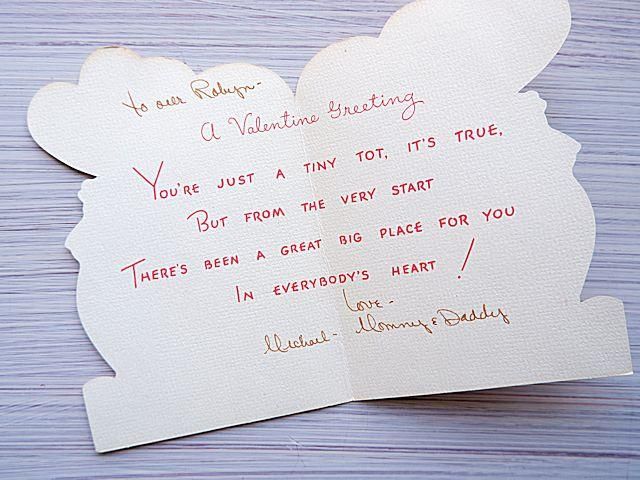 to our Robyn-
A Valentine Greeting
YOU'RE JUST A TINY TOT, IT'S TRUE,
BUT FROM THE VERY START
THERE'S BEEN A GREAT BIG PLACE FOR YOU
IN EVERYBODY'S HEART!
Love-
Michael- Mommy & Daddy